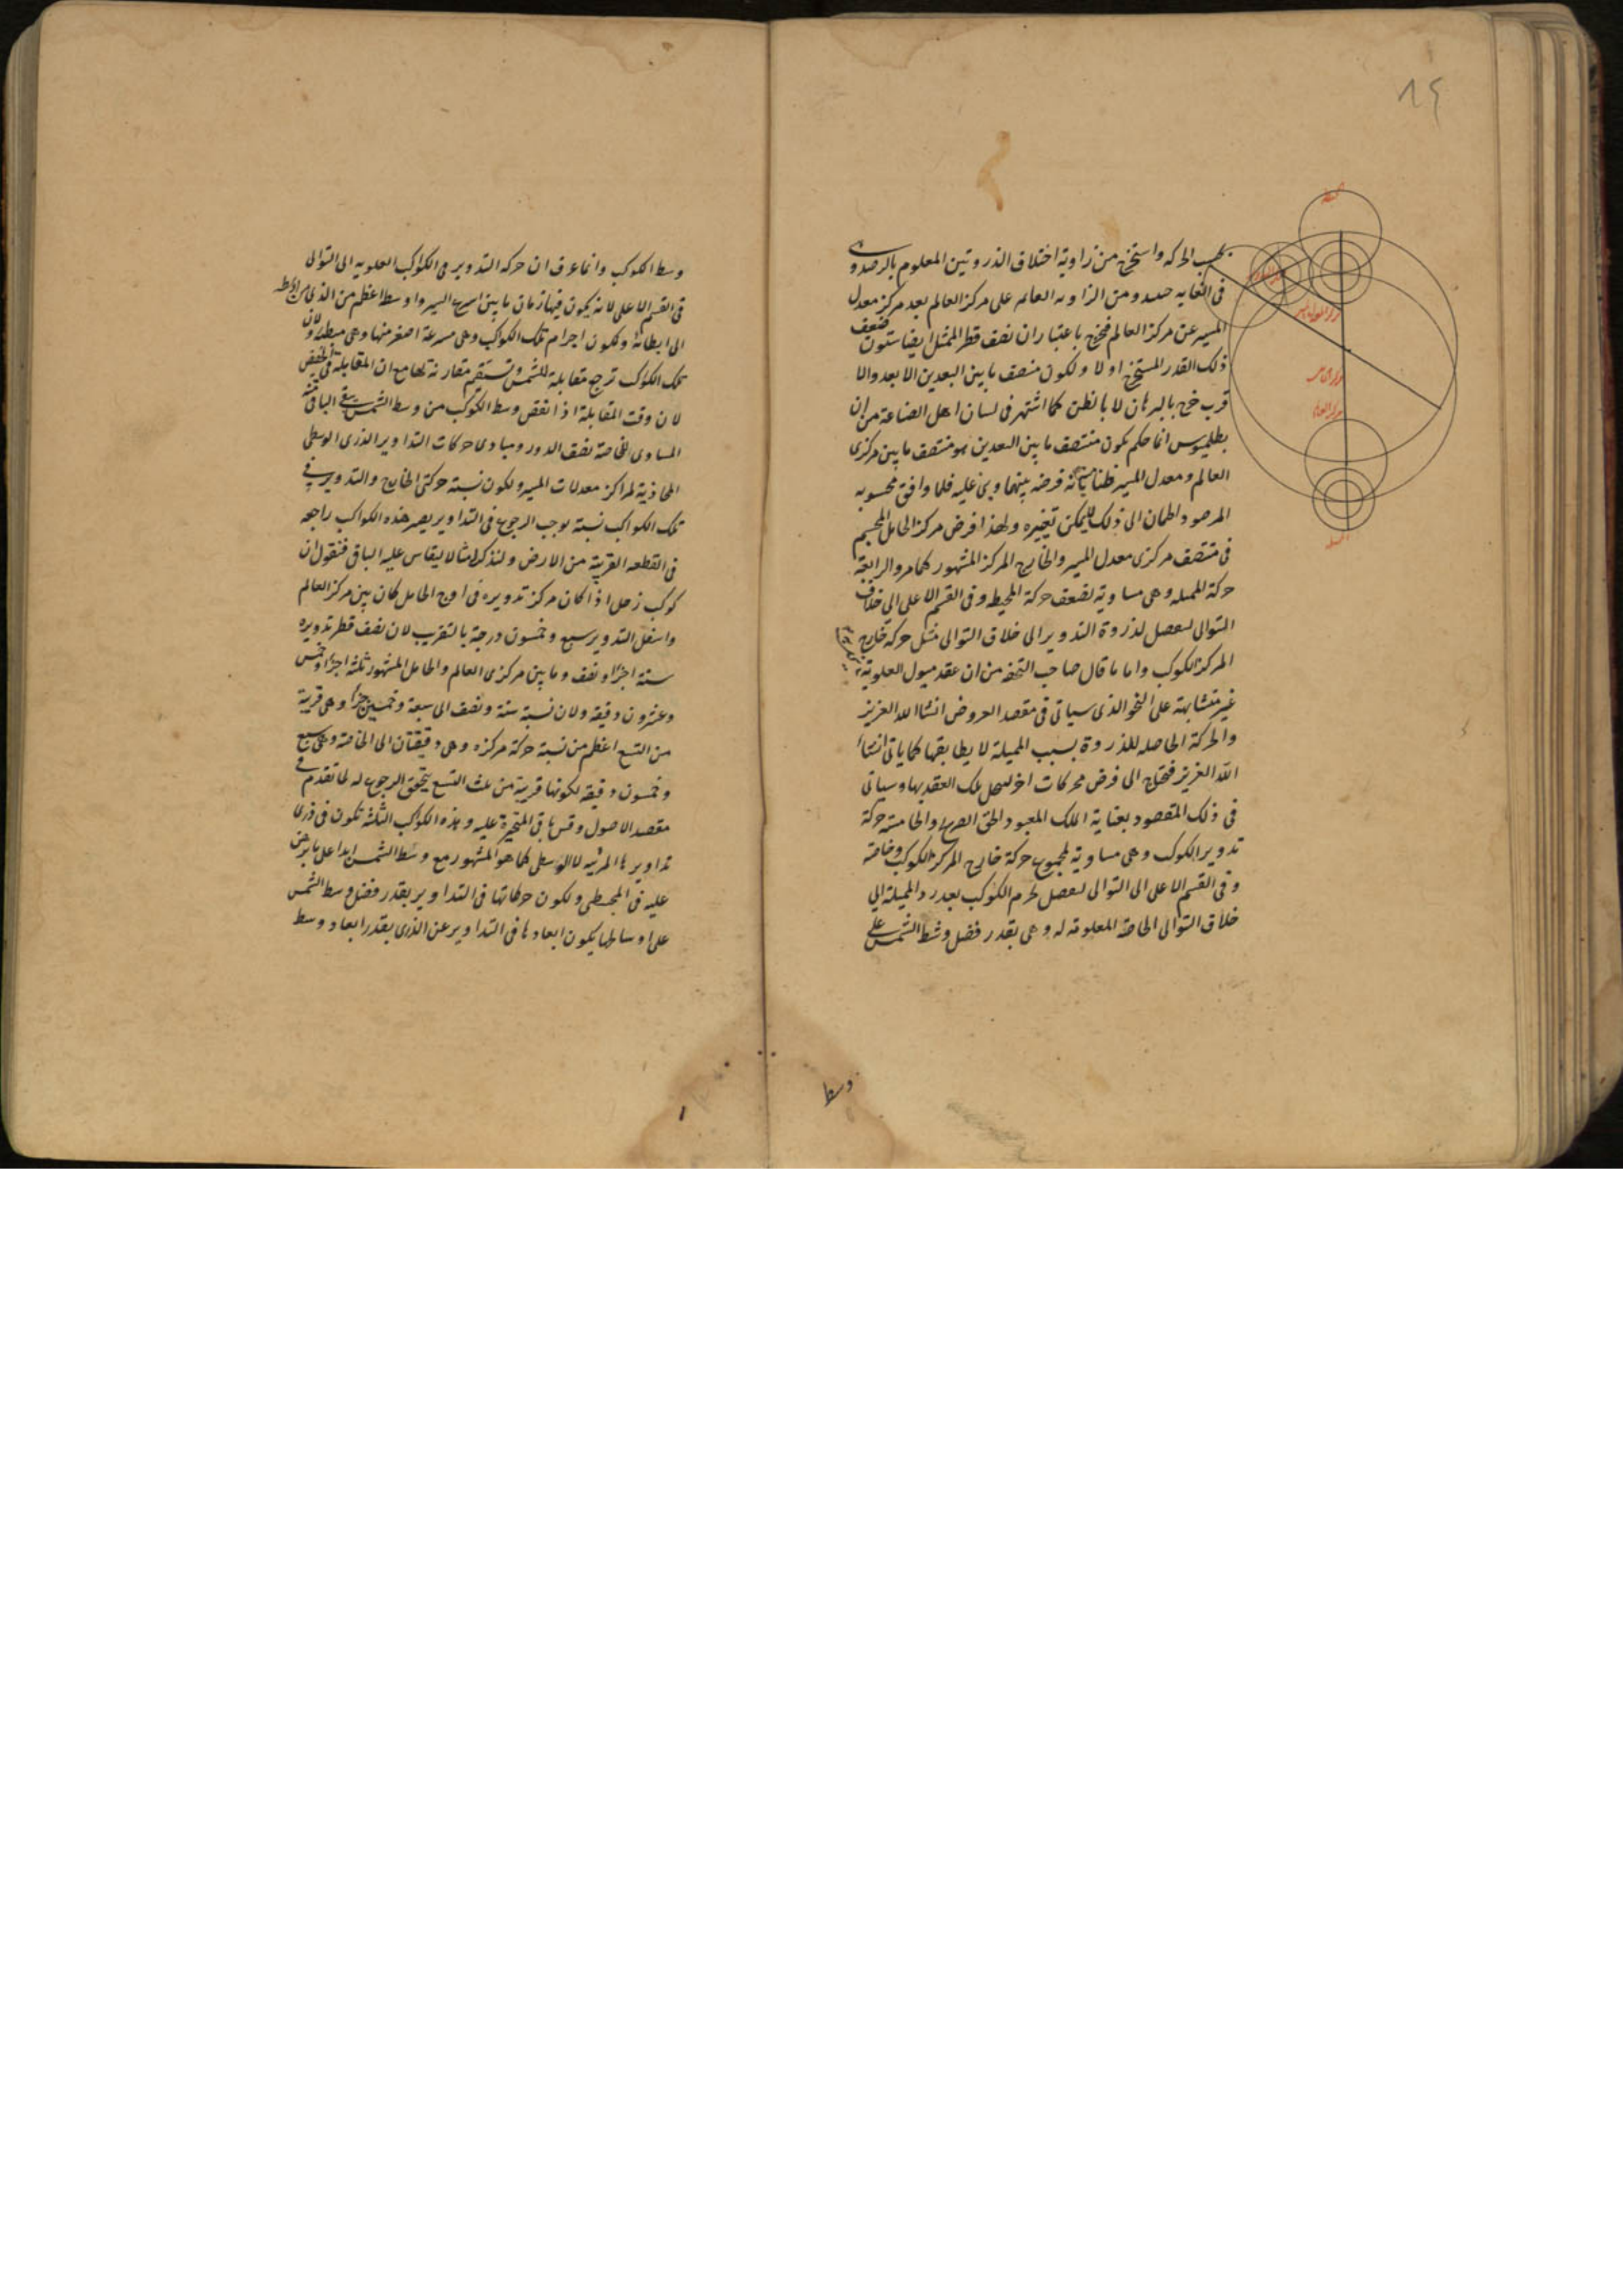 ٨٤
بحسب الحركه واستخرج من زاوية اختلاف الذروتين المعلوم بالرصد و
فى الغايه ومن الزاويه العالم على مركز العالم بعد مركز معدل
المسير عن مركز العالم فخرج باعتبار ان نصف قطر الممثل ايضا ستون ضعف
ذلك القدر المستخرج اولا ولكون منتصف ما بين البعدين الابعد والا
قرب خرج بالبرهان لا بالظن كما اشتهر فى لسان اهل الصناعة من ان
بطلميوس انما حكم بكون منتصف ما بين البعدين هو منتصف ما بين مركزى
العالم ومعدل المسير ظنا فرضه بينهما وبنى عليه فلما وافق محسوبه
المرصود اطمان الى ذلك تغييره ولهذا فرض مركز الحامل المجسم
فى منتصف مركزى معدل المسير والخارج المركز المشهور كما مر والرابعة
حركة المميله وهى مساوية لضعف حركة المحيط وفى القسم الاعلى الى خلاف
التوالى ليحصل لذروة التدوير الى خلاف التوالى مثل حركة خارج
المركز الكوكب واما ما قال صاحب التحفه من ان عقد ميول العلوية
غير متشابهة على النحو الذى سياتى فى مقصد العروض انشا الله العزيز
والحركة الحاصله للذروة بسبب المميلة لا يطابقها كما ياتى انشا
الله العزيز فيحتاج الى فرض محركات اخر ليحل تلك العقد بها وسياتى
فى ذلك المقصود بعناية الملك المعبود الحق الصراح والخامسة حركة
تدوير الكوكب وهى مساوية لمجموع حركة خارج المركز الكوكب وخاصته
وفى القسم الاعلى الى التوالى ليحصل لجرم الكوكب بعد رد المميلة الى
خلاف التوالى الخاصة المعلومة له وهى بقدر فضل وسط الشمس على
وسط
وسط الكوكب وانما عرف ان حركه التدوير فى الكواكب العلويه الى التوالى
فى القسم الاعلى لانه يكون فيها زمان ما بين اسرع السير واوسطه اعظم من الذى من اوسطه
الى ابطائه ولكون اجرام تلك الكواكب وهى مسرعة اصغر منها وهى مبطئة ولان
تلك الكواكب ترجع مقابلة للشمس وتستقيم مقارنة لها مع ان المقابلة فى الحضيض
لان وقت المقابلة اذا نقص وسط الكوكب من وسط الشمس بقى الباقى منه
المساوى للخاصة نصف الدور ومبادى حركات التداوير الذرى الوسطى
المحاذية لمراكز معدلات المسير ولكون نسبة حركتى الخارج والتدوير فى
تلك الكواكب نسبة توجب الرجوع فى التداوير يصير هذه الكواكب راجعه
فى القطعه القريبة من الارض ولنذكر مثالا يقاس عليه الباقى فنقول ان
كوكب زحل اذا كان مركز تدويره فى اوج الحامل كان بين مركز العالم
واسفل التدوير سبع وخمسون درجة بالتقريب لان نصف قطر تدويره
ستة اجزاء ونصف وما بين مركزى العالم والحامل المشهور ثلثة اجزاء وخمس
وعشرون دقيقه ولان نسبة ستة ونصف الى سبعة وخمسين جزءا وهى قريبة
من التسع اعظم من نسبة حركة مركزه وهى دقيقتان الى الخاصة وهى سبع
وخمسون دقيقه لكونها قريبة من ثلث التسع يتحقق الرجوع له لما تقدم فى
مقصد الاصول وقس باقى المتحيرة عليه وهذه الكواكب الثلثة تكون فى ذرى
تداويرها المرئيه لا الوسطى كما هو المشهور مع وسط الشمس ابدا على ما برهن
عليه فى المجسطى ولكون حركاتها فى التداوير بقدر فضل وسط الشمس
على اوساطها يكون ابعادها فى التداوير عن الذرى بقدر ابعاد وسط